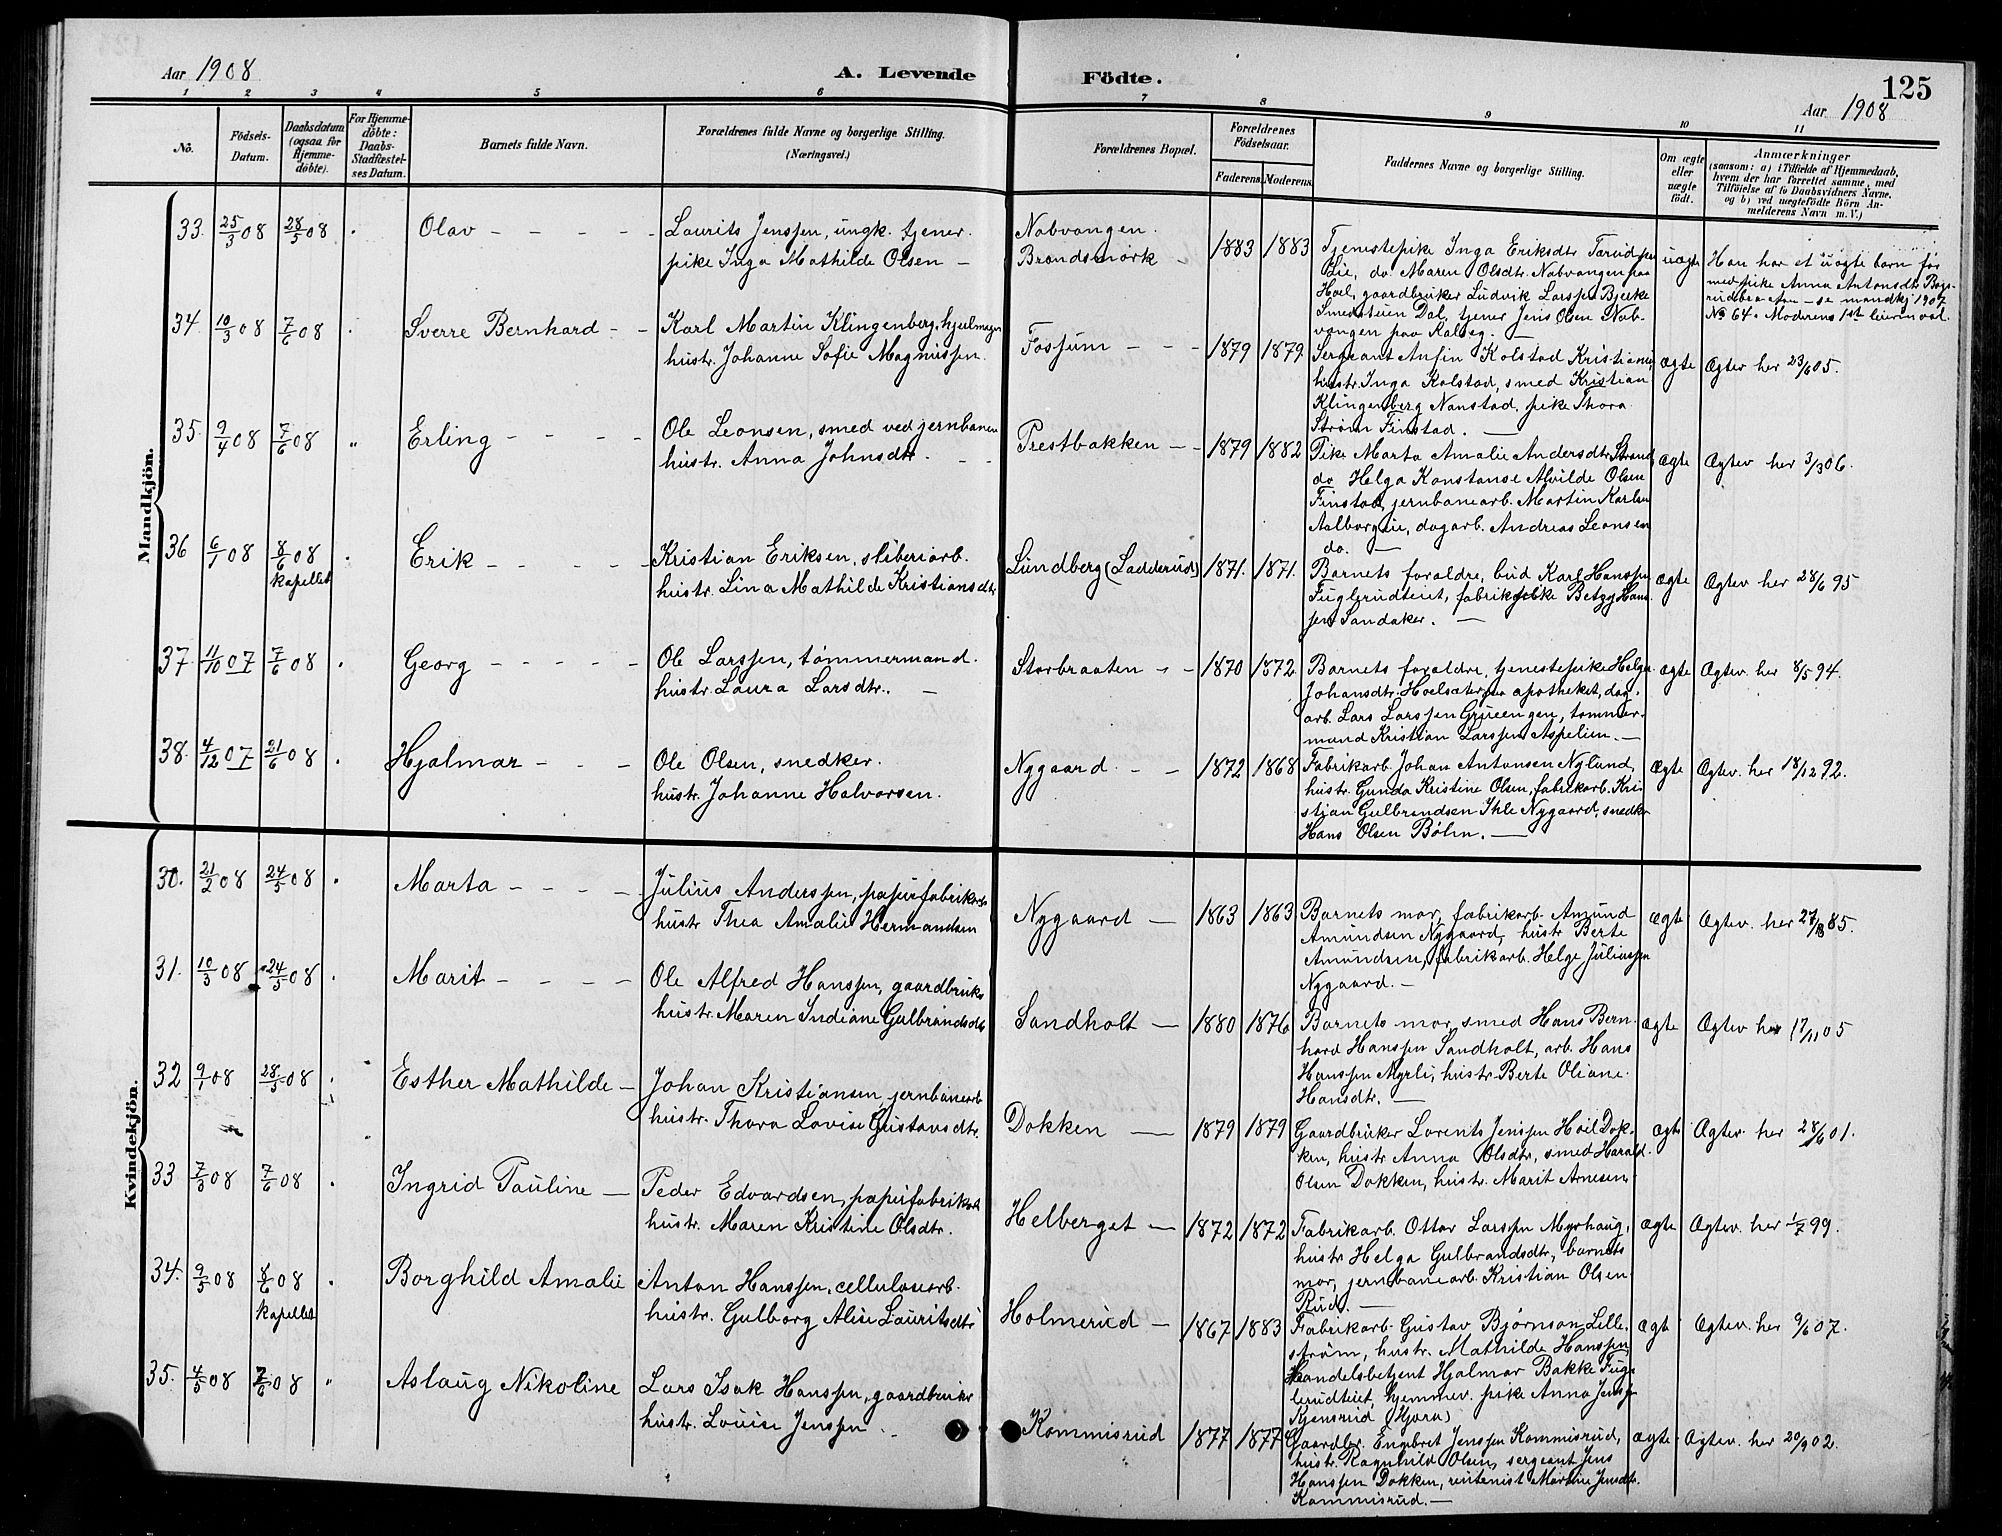 Aar 1908
A. Levende Födte.
125
Aar 1908
1 2 3 4 5 6 7 8 9 10 11
No.
Födsels-Datum.
Daabsdatum (ogsaa for Hjemme-döbte).
For Hjemme-döbte: Daabs-Stadfæstel-ses Datum.
Barnets fulde Navn.
Forældrenes fulde Navne og borgerlige Stilling.
(Næringsvei.)
Forældrenes Bopæl.
Forældrenes Födselsaar.
Faderens. Moderens.
Faddernes Navne og borgerlige Stilling.
Om ægte eller uægte födt.
Anmærkninger
(saasom: a) i Tilfælde af Hjemmedaab,
hvem der har forrettet samme, med
Tilföielse af to Daabsvidners Navne,
og b) ved uegtefödte Börn An-
melderens Navn m. V.)
Mandkjön.
33. 25/3 08 28/5 08 Olav - - - - -
Laurits Jenssen, ungk. tjener.
pike Inga Mathilde Olsen -
Nabvangen.
Brandsmork -
1883 1883
Tjenestepike Inga Eriksdtr Tarud paa
Lie, do Maren Olsdtr. Nabvangen paa
Hoel, gaardbruker Ludvik Larssen Bjerke
Smedstuen Dal, tjener Jens Olsen Nab-
vangen paa
uægte
Han har et uægte barn før
med pike Anna Antonsdtr
se mandkj 1907
No 64. Moderens 1st leiermaal.
34. 10/3 08 7/6 08 Sverre Bernhard - -
Karl Martin Klingenberg, hjulmgn
hustr. Johanne Sofie Magnussen.
Fossum - - -
1879 1879.
Sergeant Anfin Kolstad Kristiania,
hustr. Inga Kolstad, smed Kristian
Klingenberg Nanstad, pike Thora
Strøm Finstad. -
ægte
Ægtev her 23/6 05.
35. 9/4 08 7/6 08 " Erling - - - -
Ole Leonsen, smed ved jernbanen
hustr. Anna Johnsdtr. - -
Prestbakken - -
1879 1882
Pike Marta Amalie Andersdtr. Strand
do Helga Konstanse Alvilde Olsen
Finstad, jernbanearb. Martin Karlsen
Aalborgeie, dagarb. Andreas Leonsen
do. -
ægte
Ægtev her 3/3 06.
36 6/1 08 8/6 08 kapellet Erik - - - - -
Kristian Eriksen, sliberiarb.
hustr. Lina Mathilde Kristiansdtr
Lundberg (Ladderud)
1871. 1871.
Barnets foraldre, bud Karl Hanssen
Fuglerudteiet, fabrikpike Betzy Hans-
sen Sandaker. -
ægte
Ægtev her 28/6 95
37 11/10 07 7/6 08 Georg - - - - -
Ole Larssen, tømmermand.
hustr. Laura Larsdtr. -
Storbraaten - -
1870 1872
Barnets foraldre, tjenestepike Helga
Johansdtr. Hoelsæter paa apotheket, dag-
arb. Lars Larssen, tømmer-
mand Kristian Larssen Aspelien. -
ægte
Ægtev. her 8/5 94.
38. 4/12 07 21/6 08 Hjalmar - - -
Ole Olsen, snedker.
hustr. Johanne Halvorsen.
Nygaard. - -
1872 1868
Fabrikarb. Johan Antonsen Nyland,
hustr. Gunda Kristine Olsen, fabrikarb. Kri-
stian Gulbrandsen Ihle Nygaard, snedker
Hans Olsen Bøhn. -
Ægte
Ægtev. her 18/12 92.
Kvindekjön.
30. 21/2 08 24/5 08 Marta - - - -
Julius Anderssen, papirfabrikarb
hustr Thea Amalie Hermandsen
Nygaard -
1863 1863
Barnets mor, fabrikarb. Amund
Amundsen Nygaard, hustr Berte
Amundsen, fabrikarb. Helge Juliussen
Nygaard. -
ægte
Ægtev. her 27/ 85.
31. 10/3 08 24/5 08 Marit - - - -
Ole Alfred Hanssen, gaardbruker
hustr. Maren Indiane Gulbrandsdtr
Sandholt -
1880 1876
Barnets mor, smed Hans Bern-
hard Hanssen Sandholt, arb. Hans
Hanssen Myrli, hustr Berte Oliane
Hansdtr. -
ægte
Ægtev her 17/11 05
32 9/1 08 28/5 08 Esther Mathilde -
Johan Kristiansen jernbanearb
hustr. Thora Lovise Gustavsdtr.
Dokken -
1879 1879
Gaardbruker Lorents Jenssen Hoel Dok-
ken, hustr Anna Olsdtr, smed Harald
Olsen Dokken, hustr. Marit Arnesen.
ægte
Ægtev. her 28/6 01.
33 7/3 08 7/6 08 Ingrid Pauline -
Peder Edvardsen, papirfabrikarb
hustr. Maren Kristine Olsdtr.
Helberget -
1872 1872
Fabrikarb. Ottar Larssen Myrhaug,
hustr. Helga Gulbrandsdtr, barnets
mor, jernbanearb. Kristian Olsen
Rud. -
ægte
Ægtev. her 1/7 99.
34. 9/5 08 8/6 08 kapellet Borghild Amalie
Anton Hanssen, cellulosearb.
hustr. Gulborg Alise Lauritsdtr
Holmerud -
1867 1883
Fabrikarb. Gustav Bjørnson Lille-
strøm, hustr. Mathilde Hanssen,
Handelsbetjent Hjalmar Bakke Fug-
lerudteiet, hjemmev. pike Anna Jenss-
Kjensrud (Hjøra)
ægte
Ægtev. her 9/6 07.
35. 4/5 08 7/6 08 " Aslaug Nikoline
Lars Isak Hanssen, gaardbruker
hustr. Louise Jenssen.
Kommisrud
1877 1877
Gaardbr. Engebret Jenssen Kommisrud,
hustr. Ragnhild Olsen, sergeant Jens
Hanssen Dokken, rentenist Martine Jensdtr.
Kommisrud. -
ægte
Ægtev. her 20/9 02.